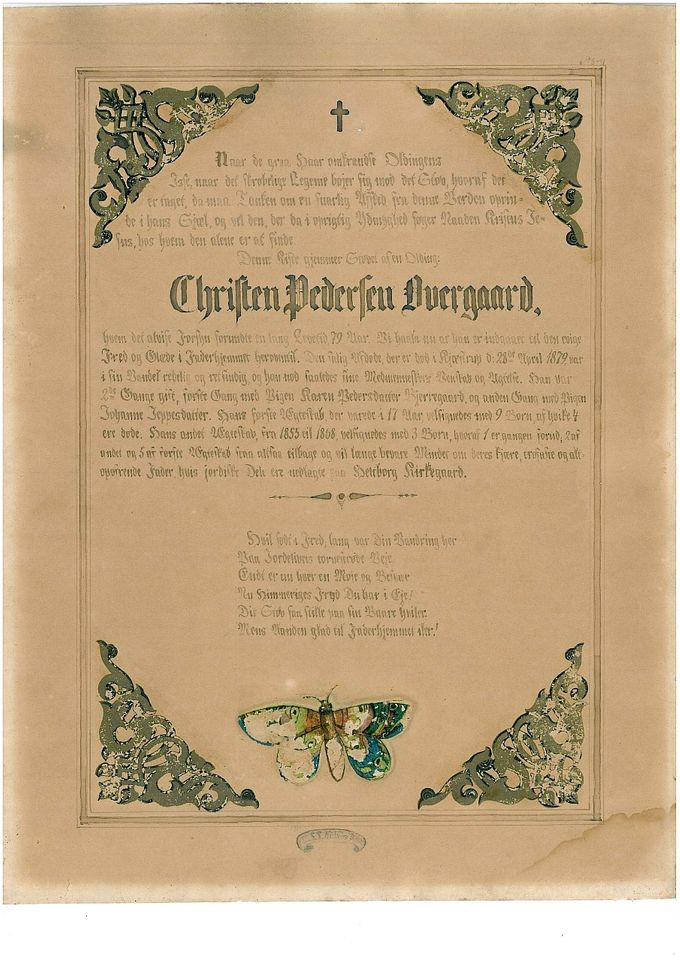 Naar de graa Haar omkrandse Oldingens
Isse, naar det skrøbelige Legeme bøjer sig mod det Støv, hvoraf det
er taget, da maa Tanken om en snarlig Afsked fra denne Verden oprin-
de i hans Sjæl, og vel den, der da i oprigtig Ydmyghed søger Naaden Kristus Je-
sus, hos hvem den alene er at finde.
Denne Kiste gjemmer Støvet af en Olding:
Christen Pedersen Overgaard,
hvem det alvise Forsyn forundte en lang Levetid 79 Aar. Vi haabe nu at han er indgaaet til den evige
Fred og Glæde i Faderhjemmet heroventil. Den salig Afdøde, der er død i Kjæstrup d: 28de April 1879 var
i sin Vandel redelig og retsindig, og han nød saaledes sine Medmenneskers Venskab og Agtelse. Han var
2de Gange gift, første Gang med Pigen Karen Pedersdatter Bjerregaard, og anden Gang med Pigen
Johanne Jeppesdatter. Hans første Ægteskab der varede i 17 Aar velsignedes med 9 Børn, af hvilke 4
ere døde. Hans andet Ægteskab, fra 1853 til 1868, velsignedes med 3 Børn, hvoraf 1 er gangen forud, 2 af
andet og 5 af første Ægteskab staa altsaa tilbage og vil længe bevare Mindet om deres kjære, trofaste og alt-
opofrende Fader, hvis jordiske Del ere nedlagte paa Heltborg Kirkegaard.
Hvil sødt i Fred, lang var Din Vandring her
Paa Jordelivets tornestrøde Veje
Endt er nu hver en Møje og Besvær
Nu Himmeriges Fryd Du har i Eje!
Dit Støv saa stille paa sin Baare hviler
Mens Aanden glad til Faderhjemmet iler!